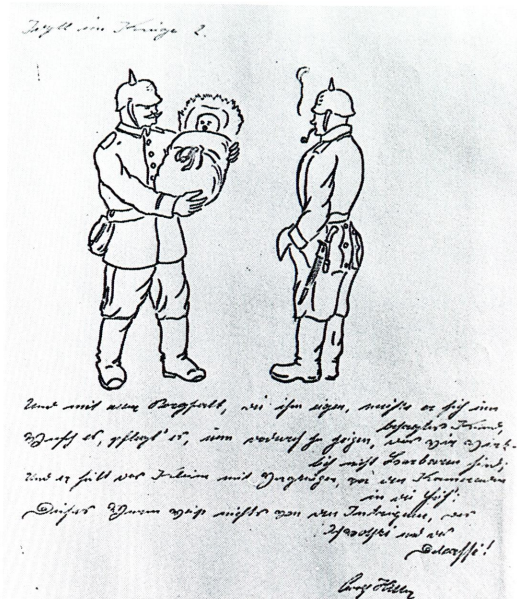 Idyll im Kriege 2.
Und mit einer Sorgfalt, die ihm eigen, machte er sich um
besagtes Kind,
Wäscht es, pflegt es, um dadurch zu zeigen, daß wir wirk-
lich nicht Barbaren sind;
Und er hält das Kleine mit Vergnügen, vor den Kameraden
in die Höh':
Dieser Wurm weiß nichts von den Intrigen, der
und der
Delcassé!
Adolf Hitler